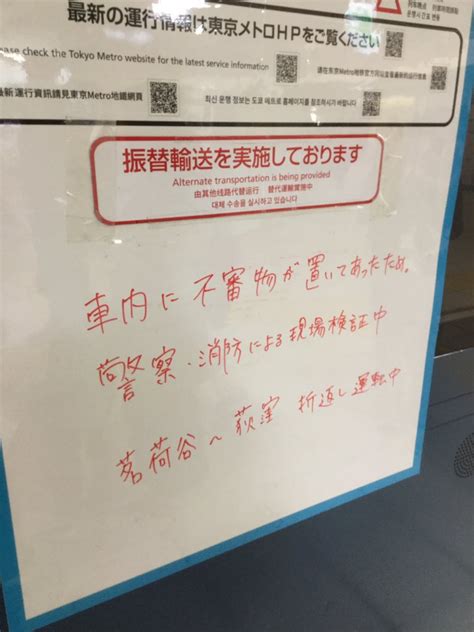 列車晩点
最新の運行情報は東京メトロHPをご覧ください
ease check the Tokyo Metro website for the latest service information
最新運行資訊請見東京Metro地鐵網頁
최신 운행 정보는 도쿄 메트로 홈페이지를 참조하시기 바랍니다
振替輸送を実施しております
Alternate transportation is being provided
由其他线路代替运行 替代運輸實施中
대체 수송을 실시하고 있습니다
車内に不審物が置いてあったため。
警察・消防による現場検証中
茗荷谷〜荻窪 折返し運転中